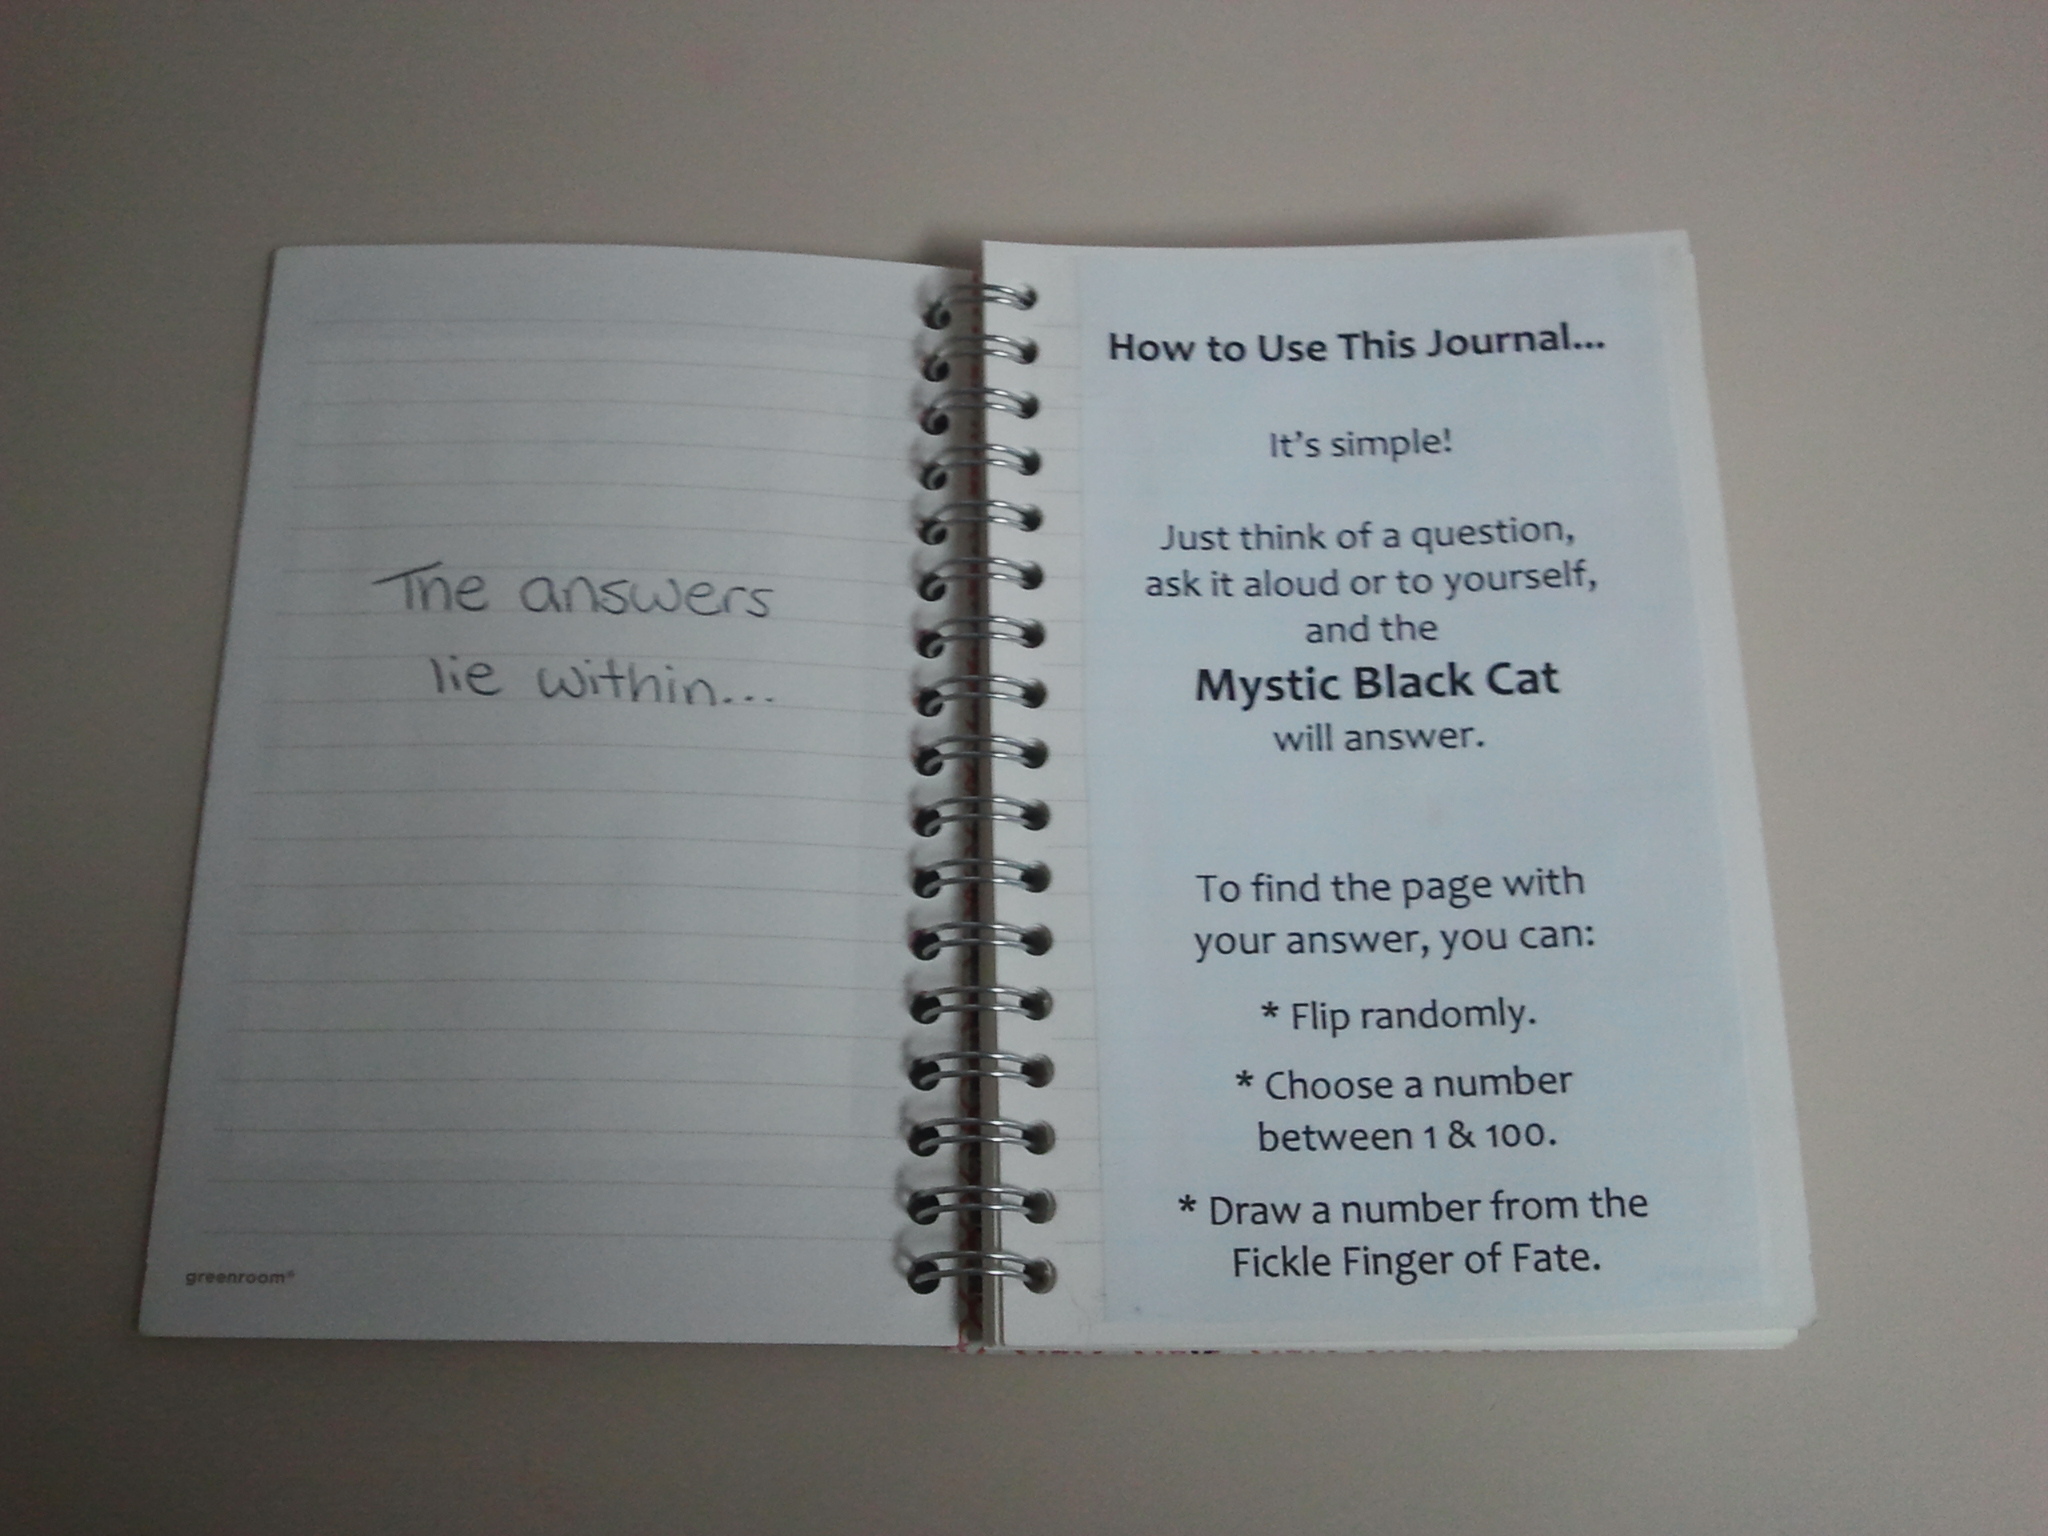 The answers
lie within...
greenroom®
How to Use This Journal...
It's simple!
Just think of a question,
ask it aloud or to yourself,
and the
Mystic Black Cat
will answer.
To find the page with
your answer, you can:
* Flip randomly.
* Choose a number
between 1 & 100.
* Draw a number from the
Fickle Finger of Fate.